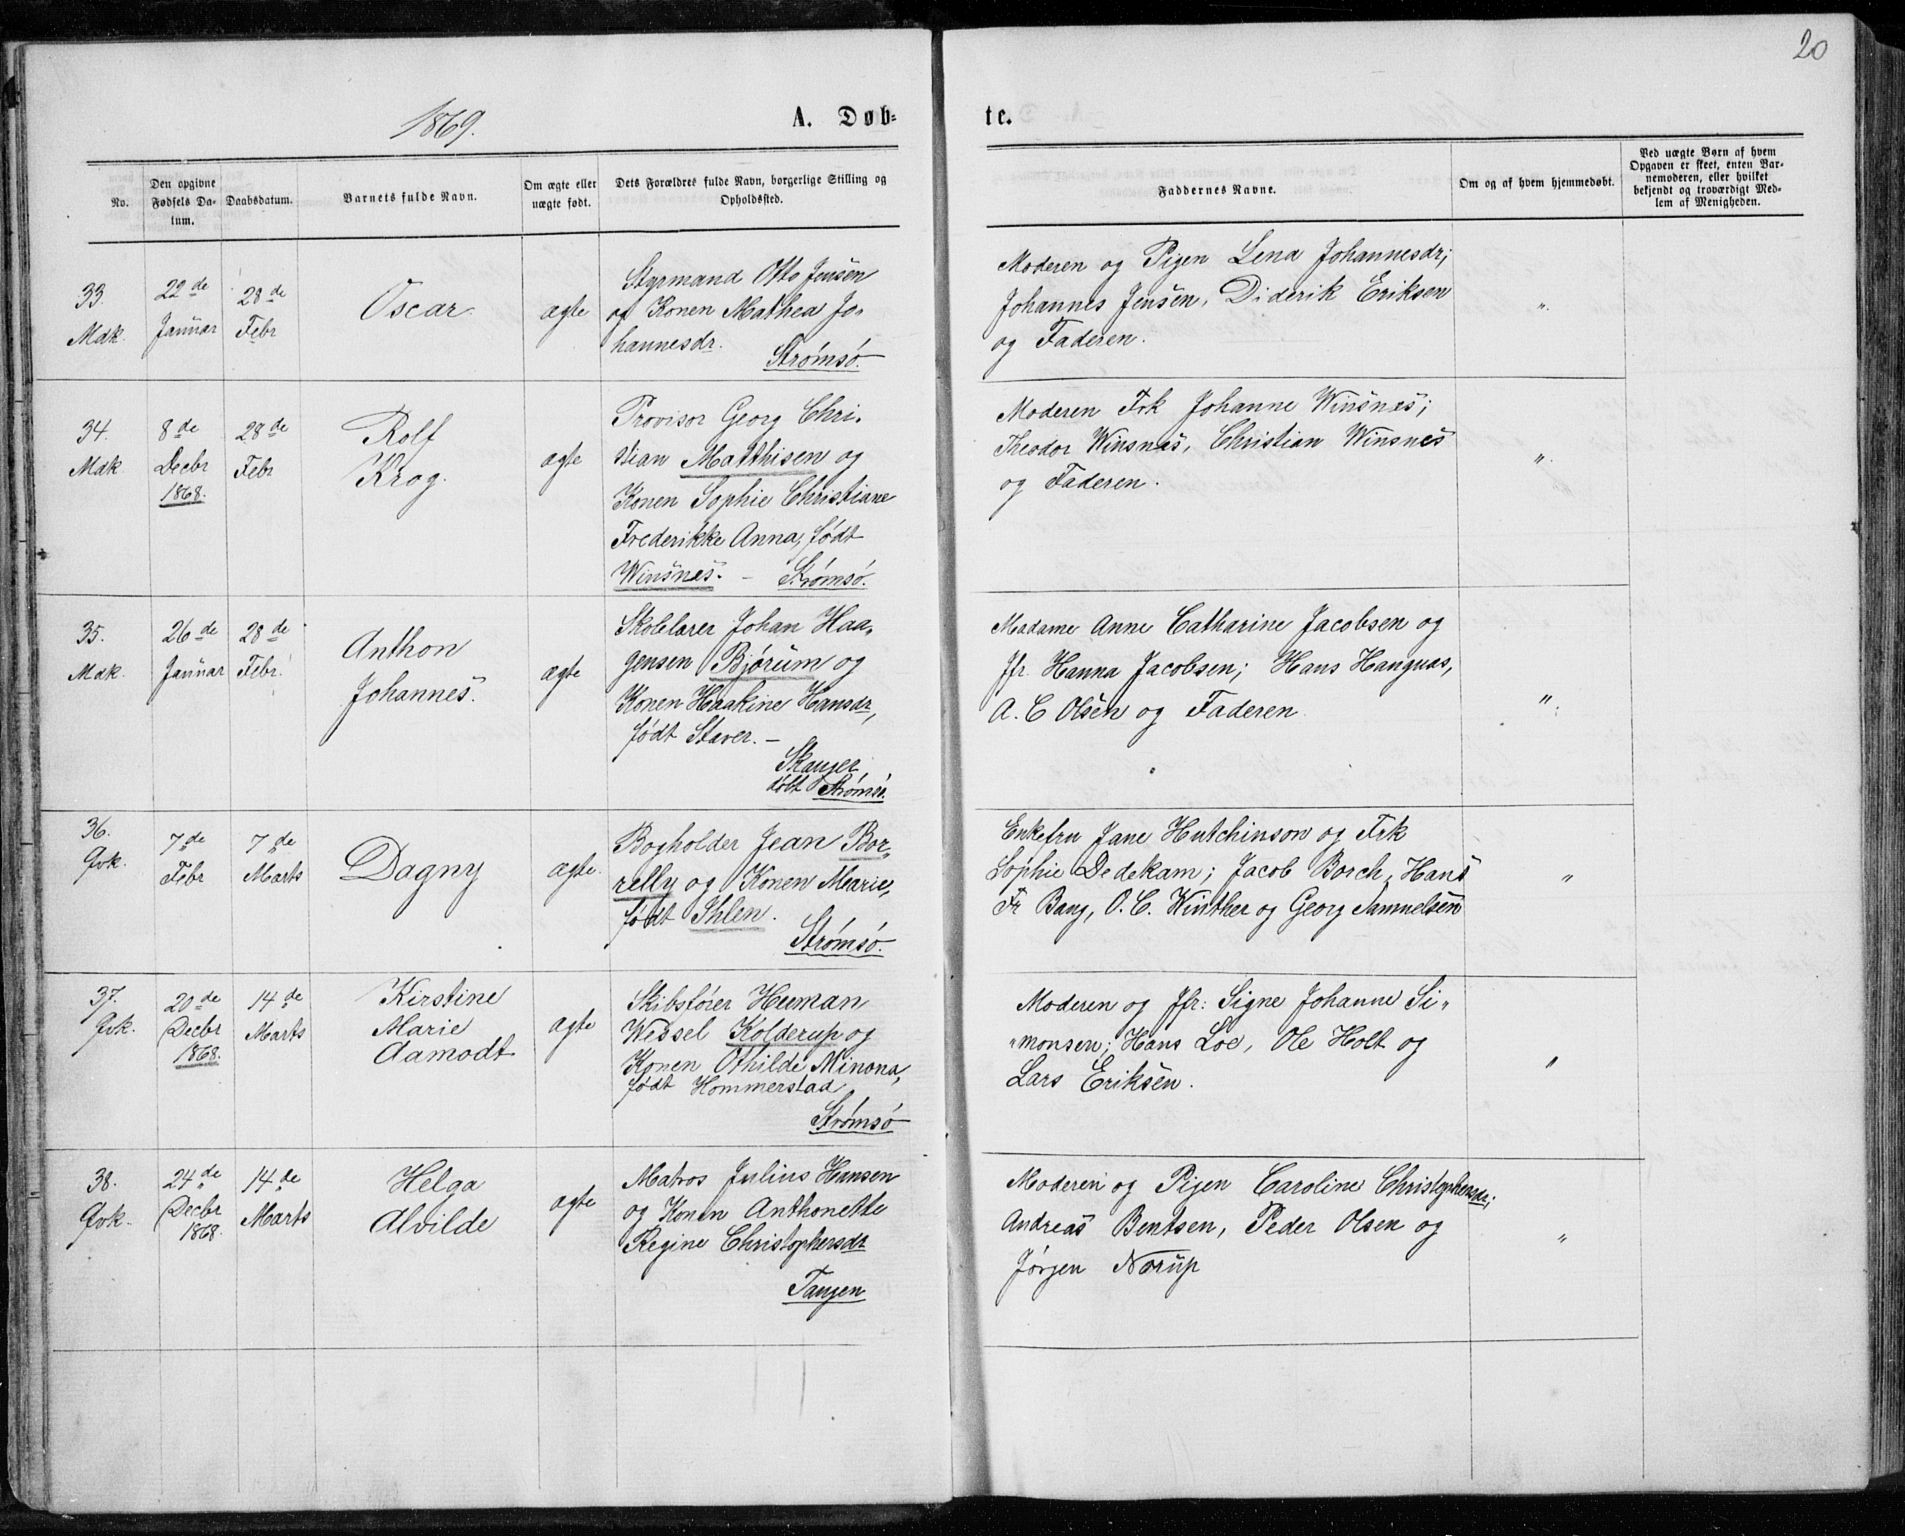 20
1869.
A. Døb-
te.
No.
Den opgivne
Fødsels Da-
tum.
Daabsdatum.
Barnets fulde Navn.
Om ægte eller
uægte født.
Dets Forældres fulde Navn, borgerlige Stilling og
Opholdssted.
Faddernes Navne.
Om og af hvem hjemmedøbt.
Ved uægte Børn af hvem
Opgaven er skeet, enten Bar-
nemoderen, eller hvilket
bekjendt og troværdigt Med-
lem af Menigheden.
33.
Mdk.
22de
Januar
28de
Febr
Oscar
ægte
Styrmand Otto Jensen
og Konen Mathea Jo-
hannesdr.
Strømsø.
Moderen og Pigen Lena Johannesdr;
Johannes Jensen, Diderik Eriksen
og Faderen.
"
34.
Mdk
8de
Decbr
1868.
28de
Febr
Rolf
Krog.
ægte
Provisor Georg Chri-
stian Matthisen og
Konen Sophie Christiane
Frederikke Anna, født
Winsnes. – Strømsø.
Moderen Frk Johanne Winsnes;
Theodor Winsnes, Christian Winsnes
og Faderen.
"
35.
Mdk.
26de
Januar
28de
Febr.
Anthon
Johannes.
ægte
Skolelærer Johan Haa-
gensen Bjørum og
Konen Haakine Hansdr,
født Staver. –
Skauger
døbt Strømsø.
Madame Anne Catharine Jacobsen og
Jfr. Hanna Jacobsen; Hans Hangaas,
A. C Olsen og Faderen
"
36.
Qvk.
7de
Febr
7de
Marts
Dagny
ægte.
Bogholder Jean Bor-
relly og Konen Marie,
født Ihlen.
Strømsø.
Enkefru Jane Hutchinson og Frk
Sophie Dedekam; Jacob Borch, Hans
Fr Bang, O. C. Winther og Georg Samuelsen
"
37.
Qvk.
20de
Decbr
1868.
14de
Marts
Kirstine
Marie
Aamodt
ægte
Skibsfører Herman
Wessel Kolderup og
Konen Othilde Minona,
født Hommerstad
Strømsø
Moderen og Jfr: Signe Johanne Si-
"monsen; Hans Loe, Ole Holt og
Lars Eriksen.
"
38.
Qvk.
24de
Decbr
1868.
14de
Marts
Helga
Alvilde
ægte
Matros Julius Hansen
og Konen Anthonette
Regine Christophersdr
Tangen
Moderen og Pigen Caroline Christophersdr;
Andreas Bentsen, Peder Olsen og
Jørgen Norup
"